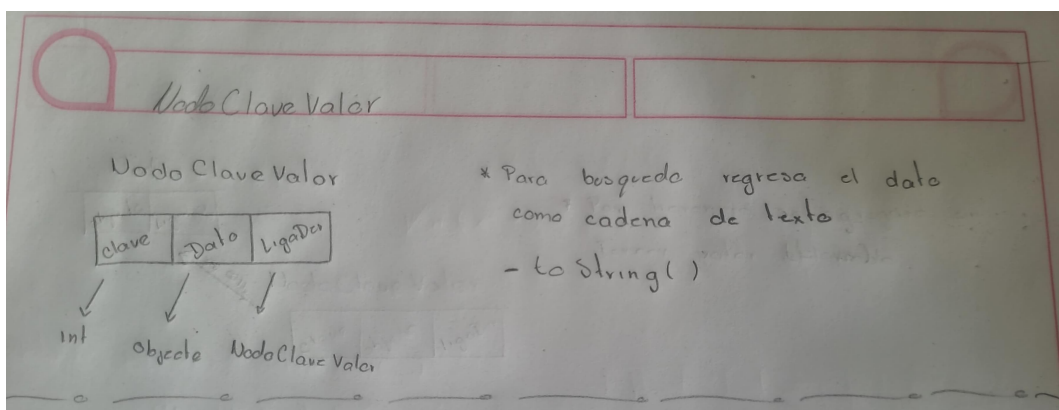 NodoClaveValor
NodoClaveValor
clave Dato LigaDer
int objecto NodoClaveValor
* Para busqueda regresa el dato
como cadena de texto
- toString()